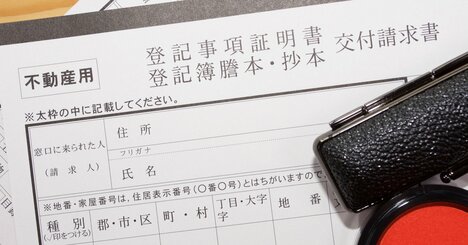 不動産用
登記事項証明書
登記簿謄本・抄本 交付請求書
※太枠の中に記載してください。
窓口に来られた人
(請求人)
住所
フリガナ
氏名
※地番・家屋番号は、住居表示番号(〇番〇号)とはちがいますので
種別
(✓印をつける)
郡・市・区
町・村
丁目・大字
字
地番